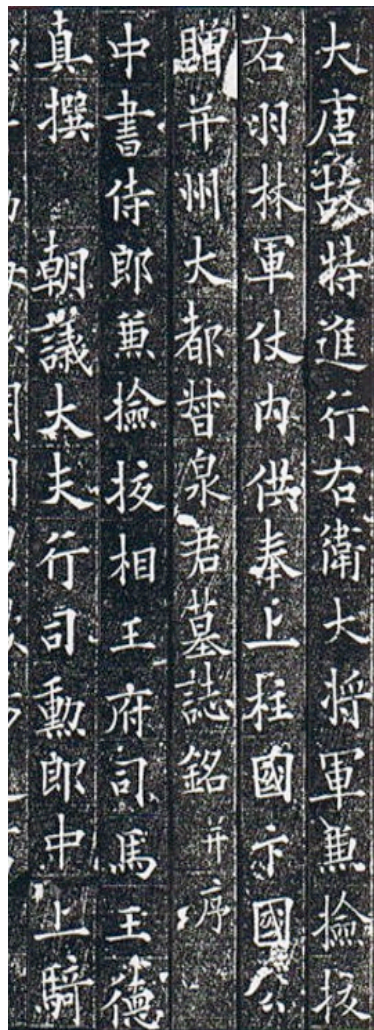 大唐故特進行右衛大將軍兼撿挍
右羽林軍仗內供奉上柱國卞國公
贈并州大都督泉君墓誌銘并序
中書侍郎兼撿挍相王府司馬王德
真撰 朝議大夫行司勲郎中上騎